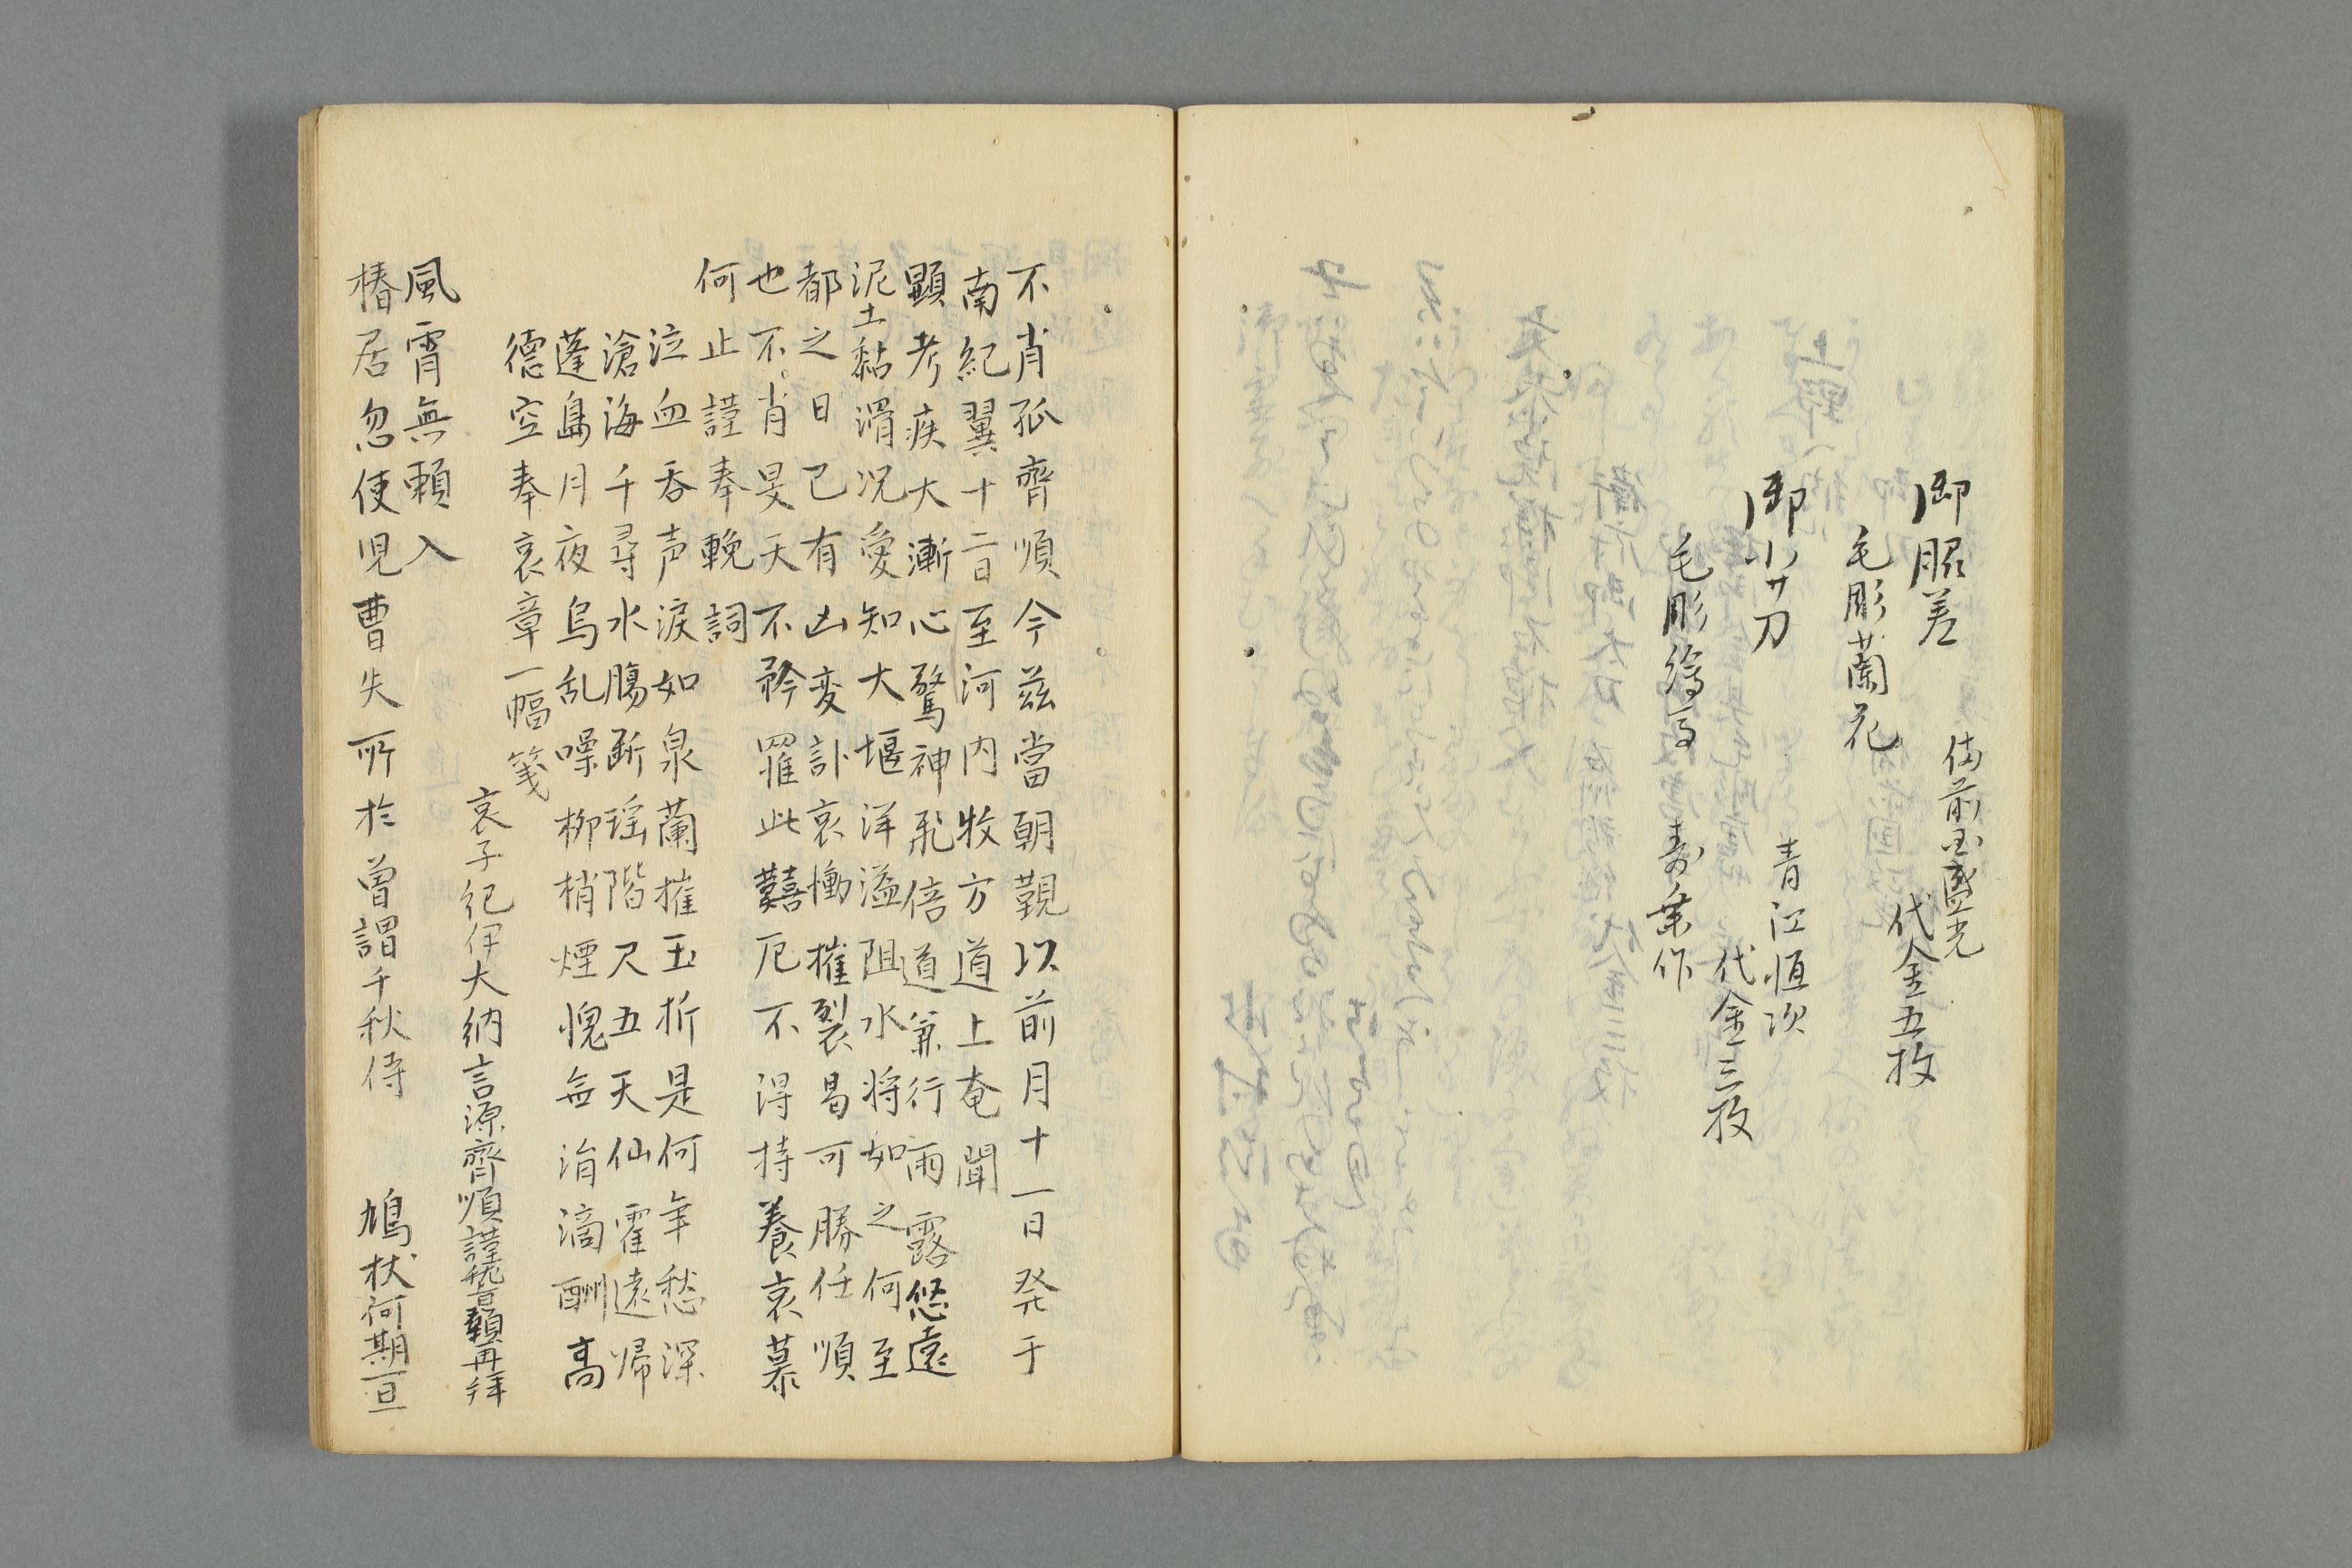 御脇差
備前国盛光
代金五枚
毛彫蘭花
御小サ刀
青江恒次
代金三枚
毛彫
寿乗作
不肖孤齊順今茲當朝覲以前月十一日発于
南紀翼十二日至河内牧方道上奄聞
顕考疾大漸心驚神飛倍道兼行雨露悠遠
泥土黏滑况愛知大堰洋溢阻水将如之何至
都之日已有凶変訃哀慟摧裂曷可勝任順
也不肖旻天不矜罹此囏厄不得持養哀慕
何止謹奉輓詞
泣血呑声涙如泉蘭摧玉折是何年愁深
滄海千尋水腸断瑶階尺五天仙霍遠帰
蓬島月夜烏乱噪柳梢煙愧無涓滴酬高
徳空奉哀章一幅箋
哀子紀伊大納言源齊順謹稽顙再拜
風霄無頼入
椿居忽使児曹失所於曽謂千秋侍
鳩杖何期一旦